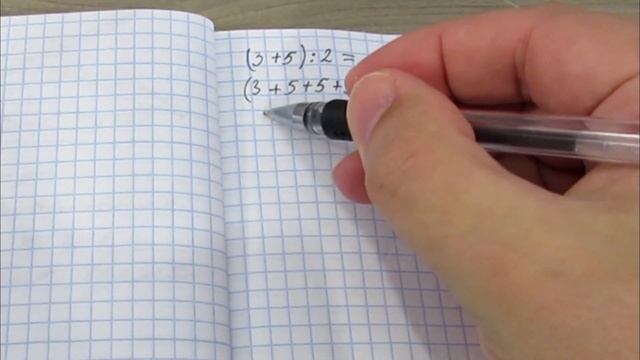 (3+5):2=
(3+5+5+